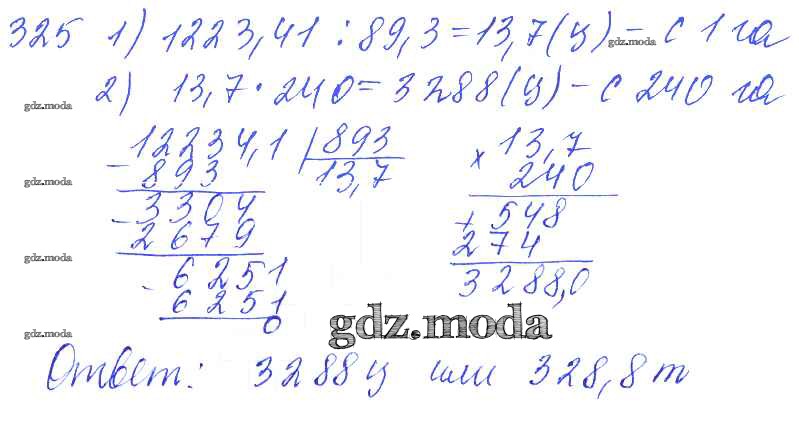 325 1) 1223,41 : 89,3 = 13,7 (ц) – с 1 га
gdz.moda
2) 13,7 · 240 = 3288 (ц) – с 240 га
gdz.moda
12234,1 | 893
– 893 13,7
gdz.moda
– 3304
2679
gdz.moda
– 6251
6251
0
gdz.moda
× 13,7
240
+ 548
274
3288,0
gdz.moda
Ответ: 3288 ц или 328,8 т